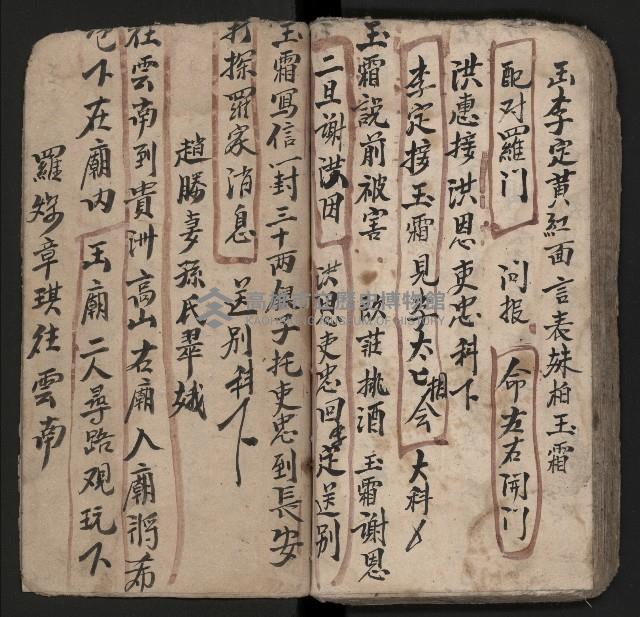 玉李定黄紅面 言表妹柏玉霜
配对羅门 问报 命左右開门
洪惠接洪恩吏忠科下
李定接玉霜見李太七相会 大科
玉霜説前被害 款莊挑酒 玉霜謝恩
二旦谢洪田 洪吏忠回定送别
玉霜写信一封三十两艮子托吏忠到長安
打探羅家消息 送别科下
趙勝妻孫氏翠娥
往雲南到貴洲高山右廟入廟將希
下在廟内 王廟二人尋路观玩下
羅章琪往雲南
高雄市立歷史博物館
KAOHSIUNG MUSEUM OF HISTORY